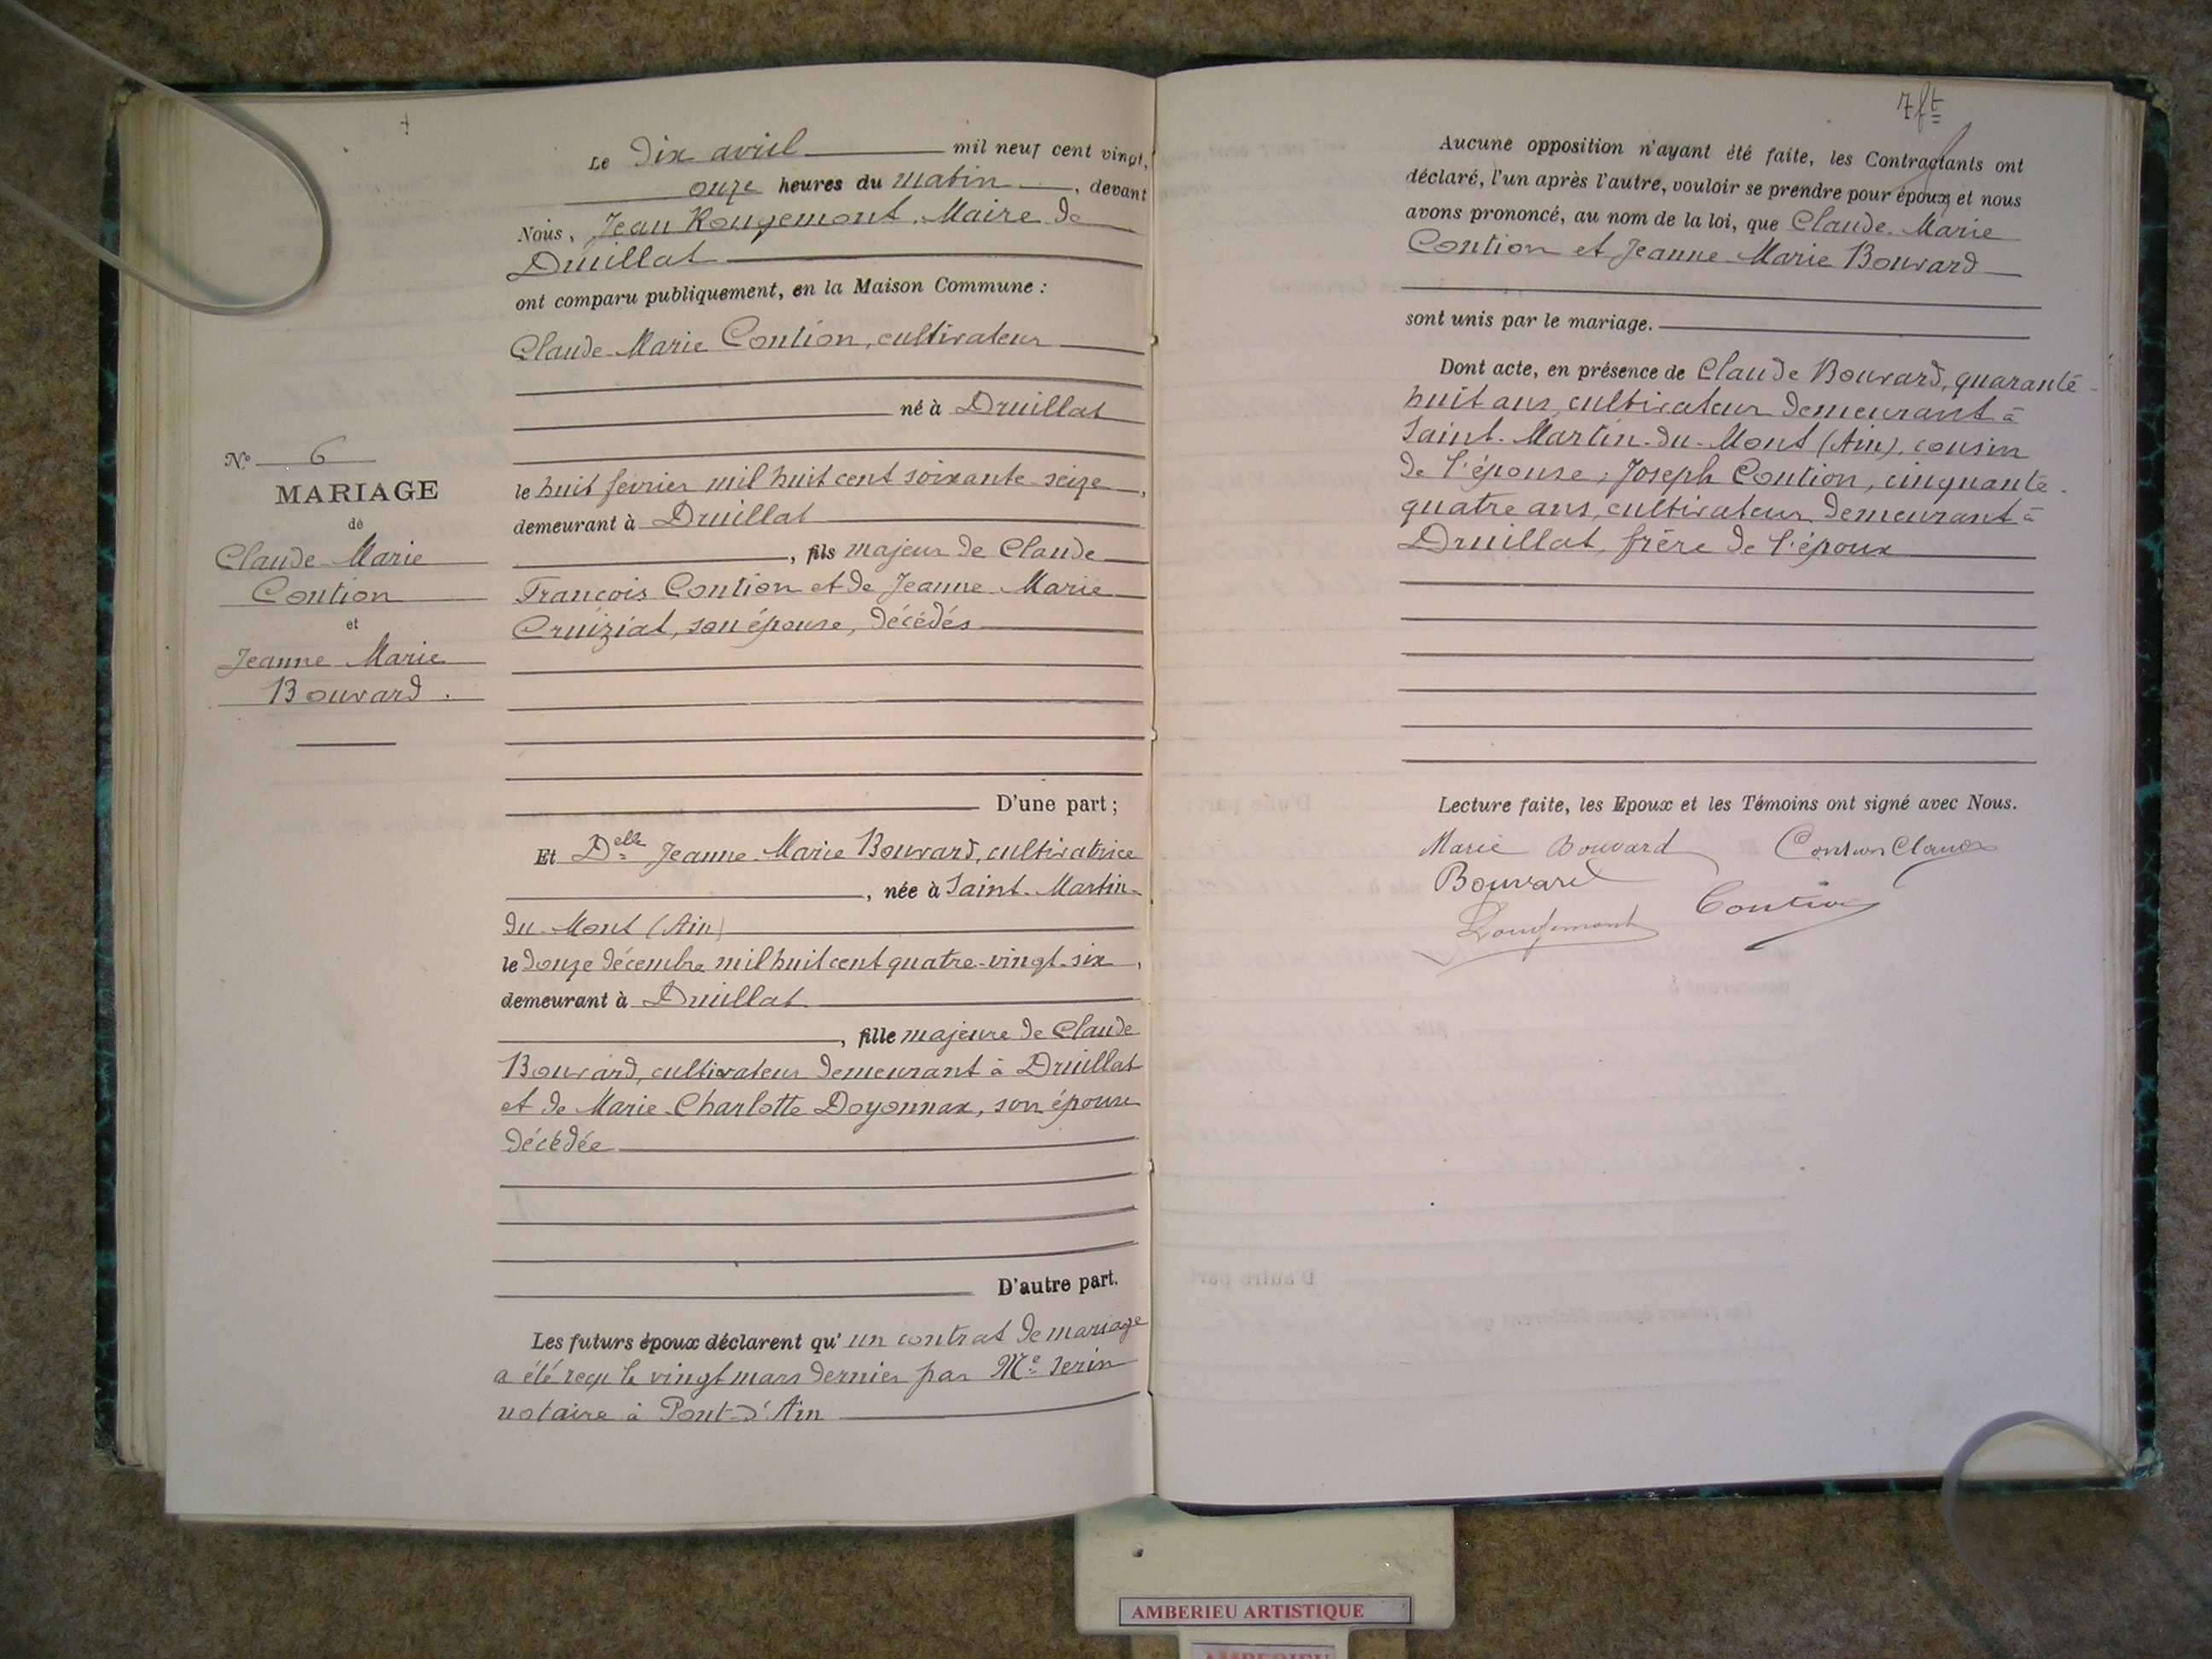 Le Dix avril mil neuf cent vingt,
onze heures du matin, devant
Nous, Jean Rougemont, Maire de
Druillat
ont comparu publiquement, en la Maison Commune :
Claude Marie Contion, cultivateur
né à Druillat
le huit février mil huit cent soixante-seize,
demeurant à Druillat
, fils majeur de Claude
François Contion et de Jeanne Marie
Cruiziat, son épouse, décédés
D'une part ;
N° 6
MARIAGE
de
Claude Marie
Contion
et
Jeanne Marie
Bouvard.
Et Delle Jeanne Marie Bouvard, cultivatrice
, née à Saint-Martin-
du-Mont (Ain)
le douze décembre mil huit cent quatre-vingt-six,
demeurant à Druillat
, fille majeure de Claude
Bouvard, cultivateur demeurant à Druillat
et de Marie Charlotte Doyonnax, son épouse
décédée
D'autre part.
Les futurs époux déclarent qu'un contrat de mariage
a été reçu le vingt mars dernier par Me Serin
notaire à Pont-d'Ain
7 ft
Aucune opposition n'ayant été faite, les Contractants ont
déclaré, l'un après l'autre, vouloir se prendre pour époux, et nous
avons prononcé, au nom de la loi, que Claude Marie
Contion et Jeanne Marie Bouvard
sont unis par le mariage.
Dont acte, en présence de Claude Bouvard, quarante-
huit ans, cultivateur demeurant à
Saint-Martin-du-Mont (Ain), cousin
de l'épouse ; Joseph Contion, cinquante-
quatre ans, cultivateur demeurant à
Druillat, frère de l'époux
Lecture faite, les Epoux et les Témoins ont signé avec Nous.
Marie Bouvard Contion Claude
Bouvard
Contion
Rougemont
AMBERIEU ARTISTIQUE
AMBERIEU